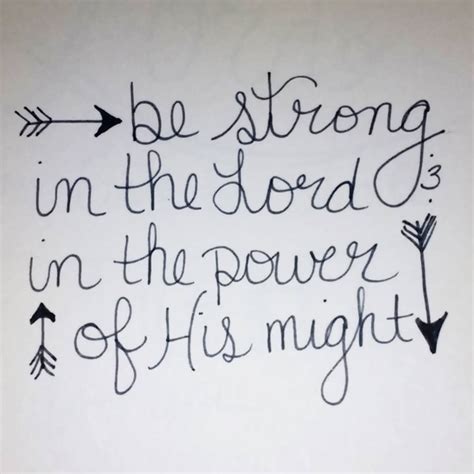 be strong
in the Lord &
in the power
of His might